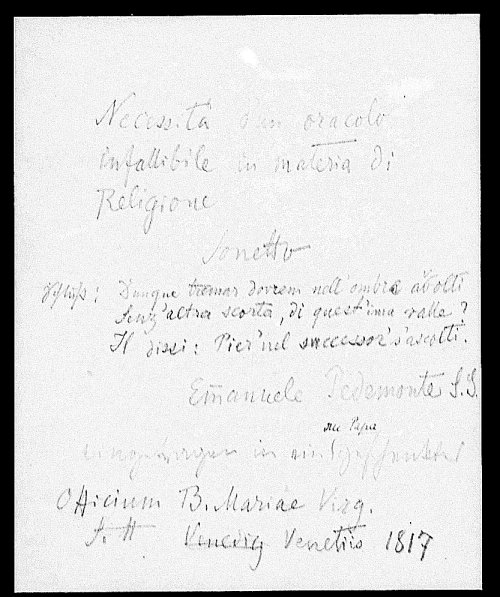 Necessità d'un oracolo
infallibile in materia di
Religione
Sonetto
Schluß: Dunque tremar dovrem nell'ombre avvolti
Senz'altra scorta, di quest'ima valle?
Il dissi: Pier nel successor s'ascolti.
Emanuele Pedemonte S.J.
Papa
in ein
Officium B. Mariae Virg.
Venedig Venetiis 1817